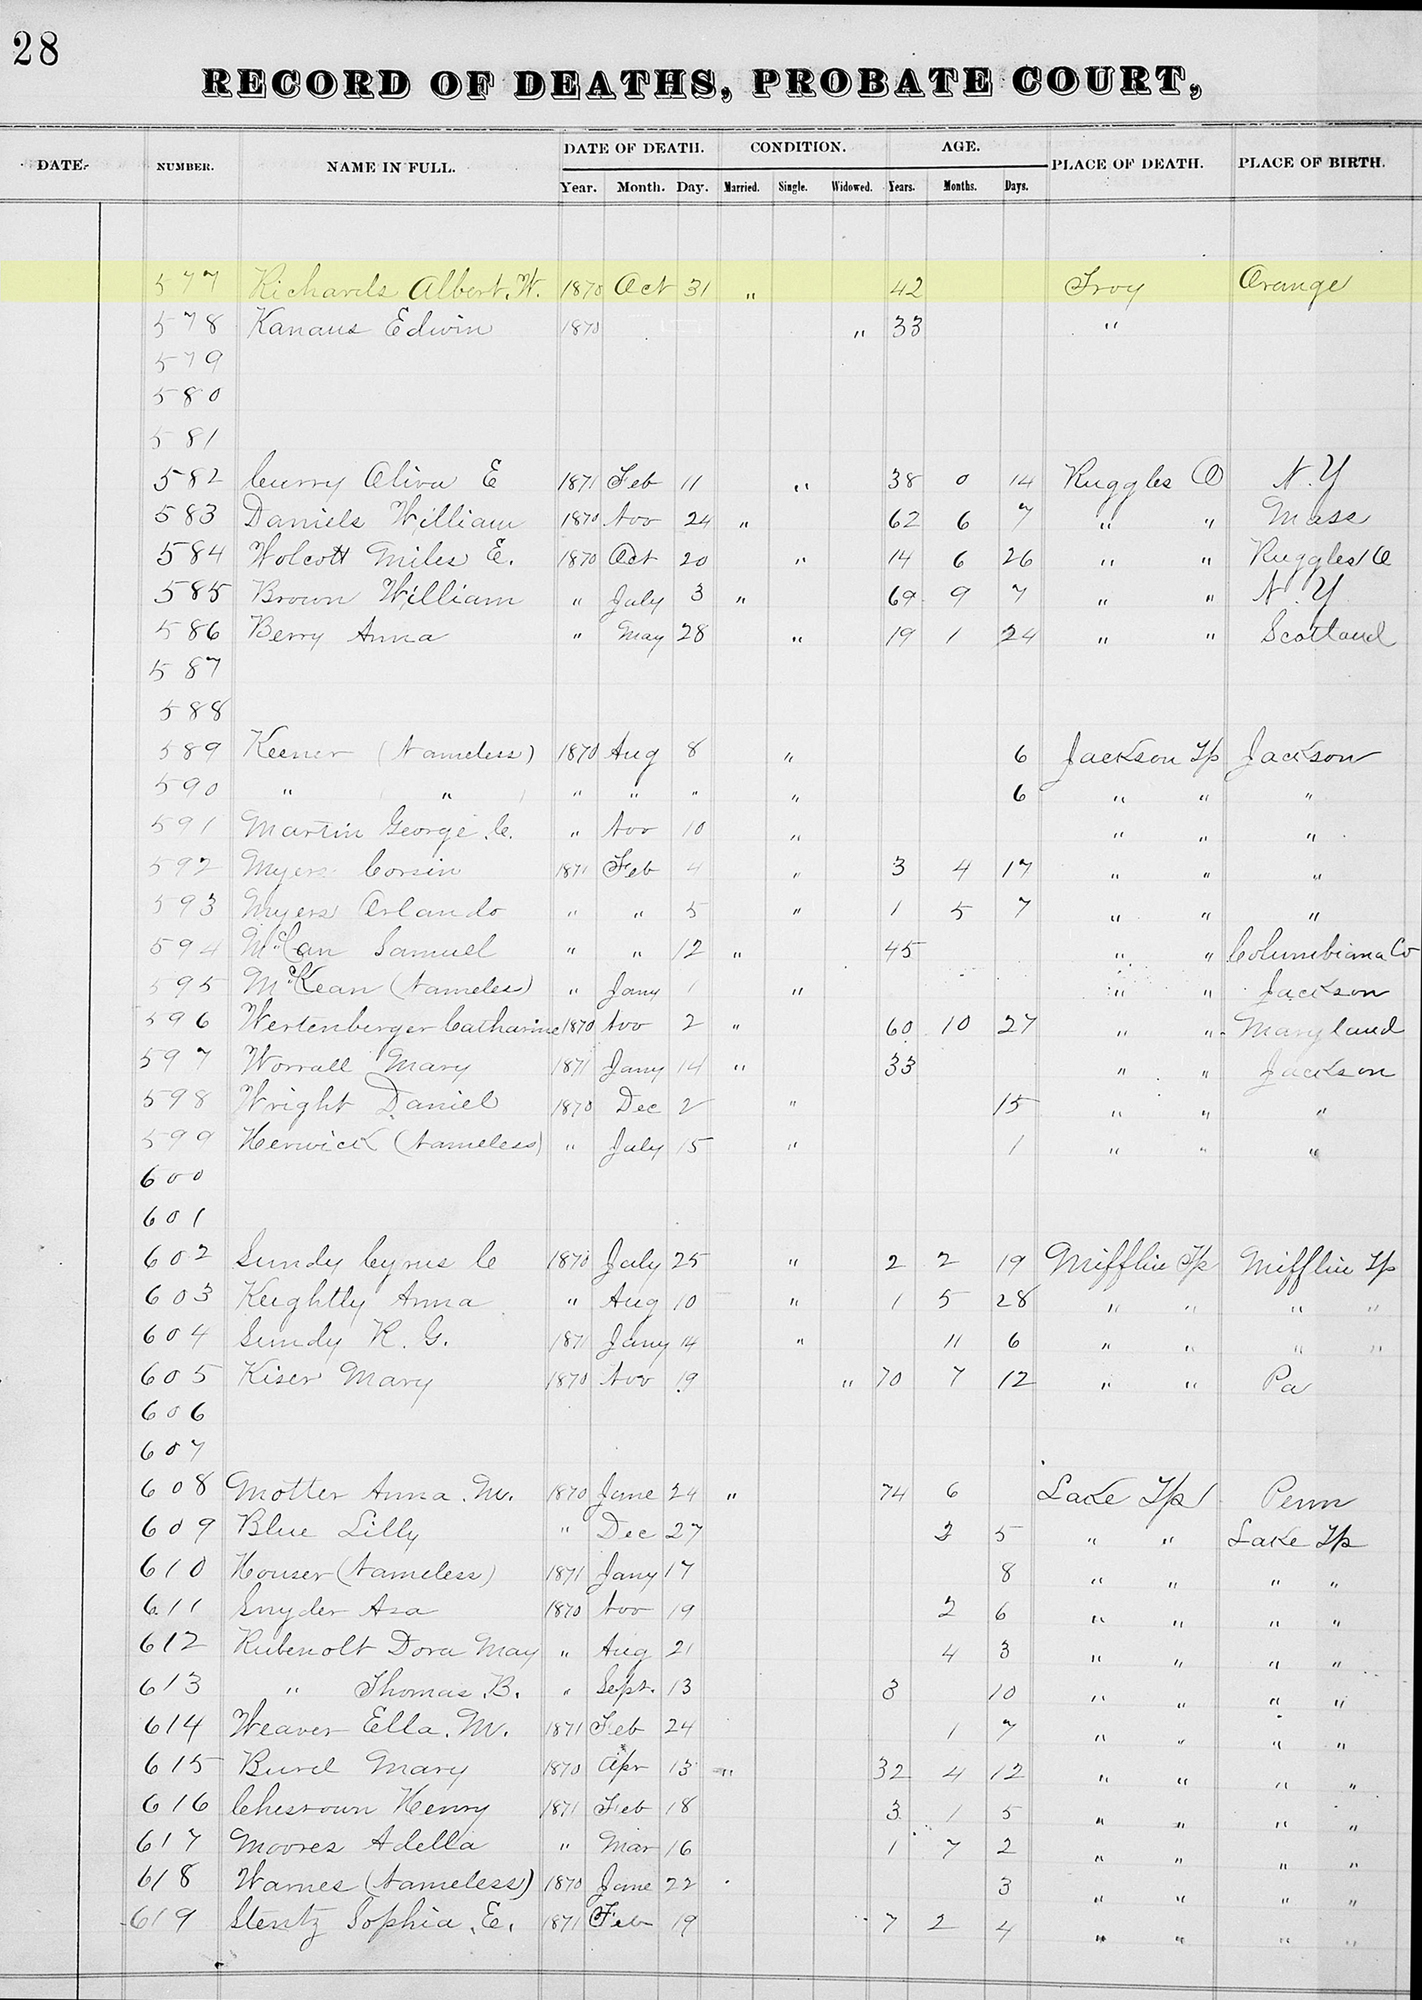 28
RECORD OF DEATHS, PROBATE COURT,
DATE. NUMBER. NAME IN FULL. DATE OF DEATH. CONDITION. AGE. PLACE OF DEATH. PLACE OF BIRTH.
Year. Month. Day. Married. Single. Widowed. Years. Months. Days.
577 Richards Albert. W. 1870 Oct 31 " 42 Troy Orange
578 Kanaus Edwin 1870 " 33 "
579
580
581
582 Curry Oliva E 1871 Feb 11 " 38 0 14 Ruggles O N.Y
583 Daniels William 1870 Nov 24 " 62 6 7 " " Mass
584 Wolcott Miles E. 1870 Oct 20 " 14 6 26 " " Ruggles O
585 Brown William " July 3 " 69 9 7 " " N.Y
586 Berry Anna " May 28 " 19 1 24 " " Scotland
587
588
589 Keener (Nameless) 1870 Aug 8 " 6 Jackson Tp Jackson
590 " " " " " " 6 " " "
591 Martin George. C. " Nov 10 " " " "
592 Myers Corsin 1871 Feb 4 " 3 4 17 " " "
593 Myers Orlando " " 5 " 1 5 7 " " "
594 McCan Samuel " " 12 " 45 " " Columbiana Co
595 McKean (Nameless) " Jany 1 " " " Jackson
596 Wertenberger Catharine 1870 Nov 2 " 60 10 27 " " Maryland
597 Worrall Mary 1871 Jany 14 " 33 " " Jackson
598 Wright Daniel 1870 Dec 2 " 15 " " "
599 Herwick (Nameless) " July 15 " 1 " " "
600
601
602 Sundy Cyrus C 1870 July 25 " 2 2 19 Mifflin Tp Mifflin Tp
603 Keightly Anna " Aug 10 " 1 5 28 " " " "
604 Sundy R. G. 1871 Jany 14 " 11 6 " " " "
605 Kiser Mary 1870 Nov 19 " 70 7 12 " " Pa
606
607
608 Motter Anna. M. 1870 June 24 " 74 6 Lake Tp Penn
609 Blue Lilly " Dec 27 5 " " Lake Tp
610 Houser (Nameless) 1871 Jany 17 8 " " " "
611 Snyder Asa 1870 Nov 19 2 6 " " " "
612 Rubenolt Dora May " Aug 21 4 3 " " " "
613 " Thomas. B. " Sept. 13 3 10 " " " "
614 Weaver Ella. M. 1871 Feb 24 1 7 " " " "
615 Burd Mary 1870 Apr 13 " 32 4 12 " " " "
616 Chesroun Henry 1871 Feb 18 3 1 5 " " " "
617 Moores Adella " Mar 16 1 7 2 " " " "
618 Warnes (Nameless) 1870 June 22 3 " " " "
619 Stentz Sophia. E. 1871 Feb 19 7 2 4 " " " "